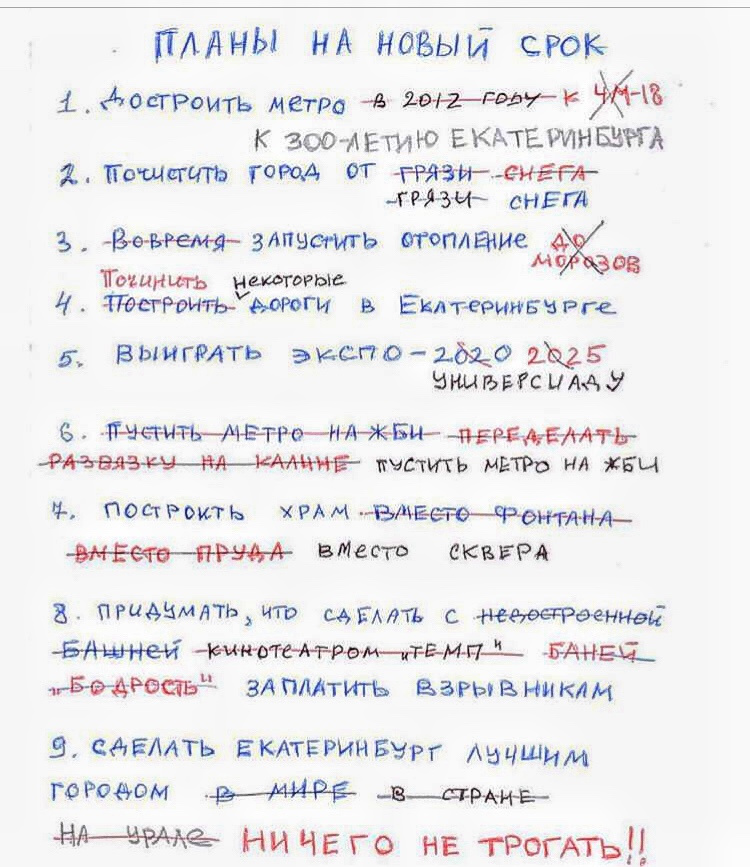 ПЛАНЫ НА НОВЫЙ СРОК
1. ДОСТРОИТЬ МЕТРО В 2012 ГОДУ К ЧМ-18
К 300-ЛЕТИЮ ЕКАТЕРИНБУРГА
2. ПОЧИСТИТЬ ГОРОД ОТ ГРЯЗИ СНЕГА
ГРЯЗИ СНЕГА
3. ВОВРЕМЯ ЗАПУСТИТЬ ОТОПЛЕНИЕ ДО
МОРОЗОВ
ПОЧИНИТЬ НЕКОТОРЫЕ
4. ПОСТРОИТЬ ДОРОГИ В ЕКАТЕРИНБУРГЕ
5. ВЫИГРАТЬ ЭКСПО-2020 2025
УНИВЕРСИАДУ
6. ПУСТИТЬ МЕТРО НА ЖБИ ПЕРЕДЕЛАТЬ
РАЗВЯЗКУ НА КАЛИНЕ ПУСТИТЬ МЕТРО НА ЖБИ
7. ПОСТРОИТЬ ХРАМ ВМЕСТО ФОНТАНА
ВМЕСТО ПРУДА ВМЕСТО СКВЕРА
8. ПРИДУМАТЬ, ЧТО СДЕЛАТЬ С НЕДОСТРОЕННОЙ
БАШНЕЙ КИНОТЕАТРОМ „ТЕМП" БАНЕЙ
„БОДРОСТЬ" ЗАПЛАТИТЬ ВЗРЫВНИКАМ
9. СДЕЛАТЬ ЕКАТЕРИНБУРГ ЛУЧШИМ
ГОРОДОМ В МИРЕ В СТРАНЕ
НА УРАЛЕ НИЧЕГО НЕ ТРОГАТЬ!!